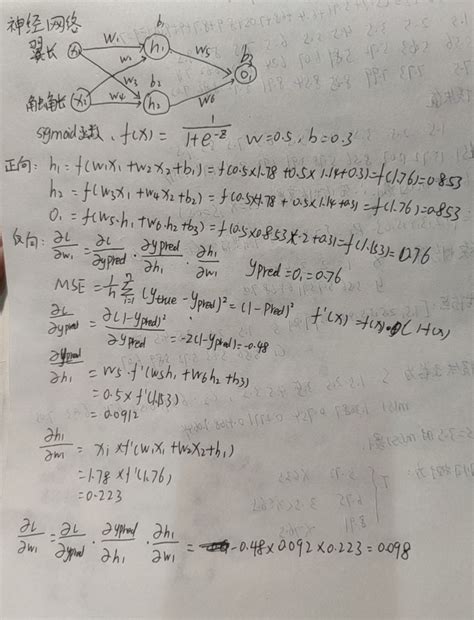 神经网络
翼长 x₁ w₁ h₁ b₁ w₅ b₃
w₂ o₁
w₃ b₂
触角长 x₂ w₄ h₂ w₆
sigmoid函数, f(x) = 1/(1+e^-z) w=0.5, b=0.3
正向: h₁ = f(w₁x₁+w₂x₂+b₁) = f(0.5×1.78+0.5×1.14+0.3) = f(1.76) = 0.853
h₂ = f(w₃x₁+w₄x₂+b₂) = f(0.5×1.78+0.5×1.14+0.3) = f(1.76) = 0.853
O₁ = f(w₅·h₁+w₆h₂+b₃) = f(0.5×0.853×2+0.3) = f(1.153) = 0.76
反向: ∂L/∂w₁ = ∂L/∂ypred · ∂ypred/∂h₁ · ∂h₁/∂w₁ ypred=O₁=0.76
MSE = 1/n Σ(i=1,n) (ytrue-ypred)² = (1-Pred)²
∂L/∂ypred = ∂(1-ypred)²/∂ypred = -2(1-ypred) = -0.48 f'(x) = f(x)·(1-f(x))
∂ypred/∂h₁ = w₅·f'(w₅h₁+w₆h₂+b₃)
= 0.5×f'(1.153)
= 0.0912
∂h₁/∂w₁ = x₁×f'(w₁x₁+w₂x₂+b₁)
= 1.78×f'(1.76)
= 0.223
∂L/∂w₁ = ∂L/∂ypred · ∂ypred/∂h₁ · ∂h₁/∂w₁ = -0.48×0.092×0.223 = 0.098